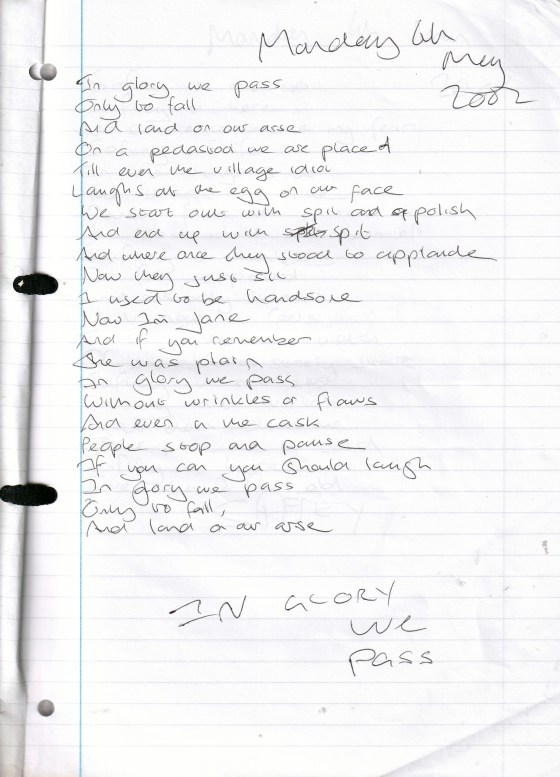 Monday 6th
May
2002
In glory we pass
Only to fall
And land on our arse
On a pedastod we are placed
Till even the village idiot
Laughs at the egg on our face
We start out with spit and polish
And end up with spit
And where once they stood to applaude
Now they just sit
I used to be handsome
Now I'm jane
And if you remember
She was plain
In glory we pass
Without wrinkles or flaws
And even in the cask
People stop and pause
If you can you should laugh
In glory we pass
Only to fall,
And land on our arse
IN GLORY
We
pass